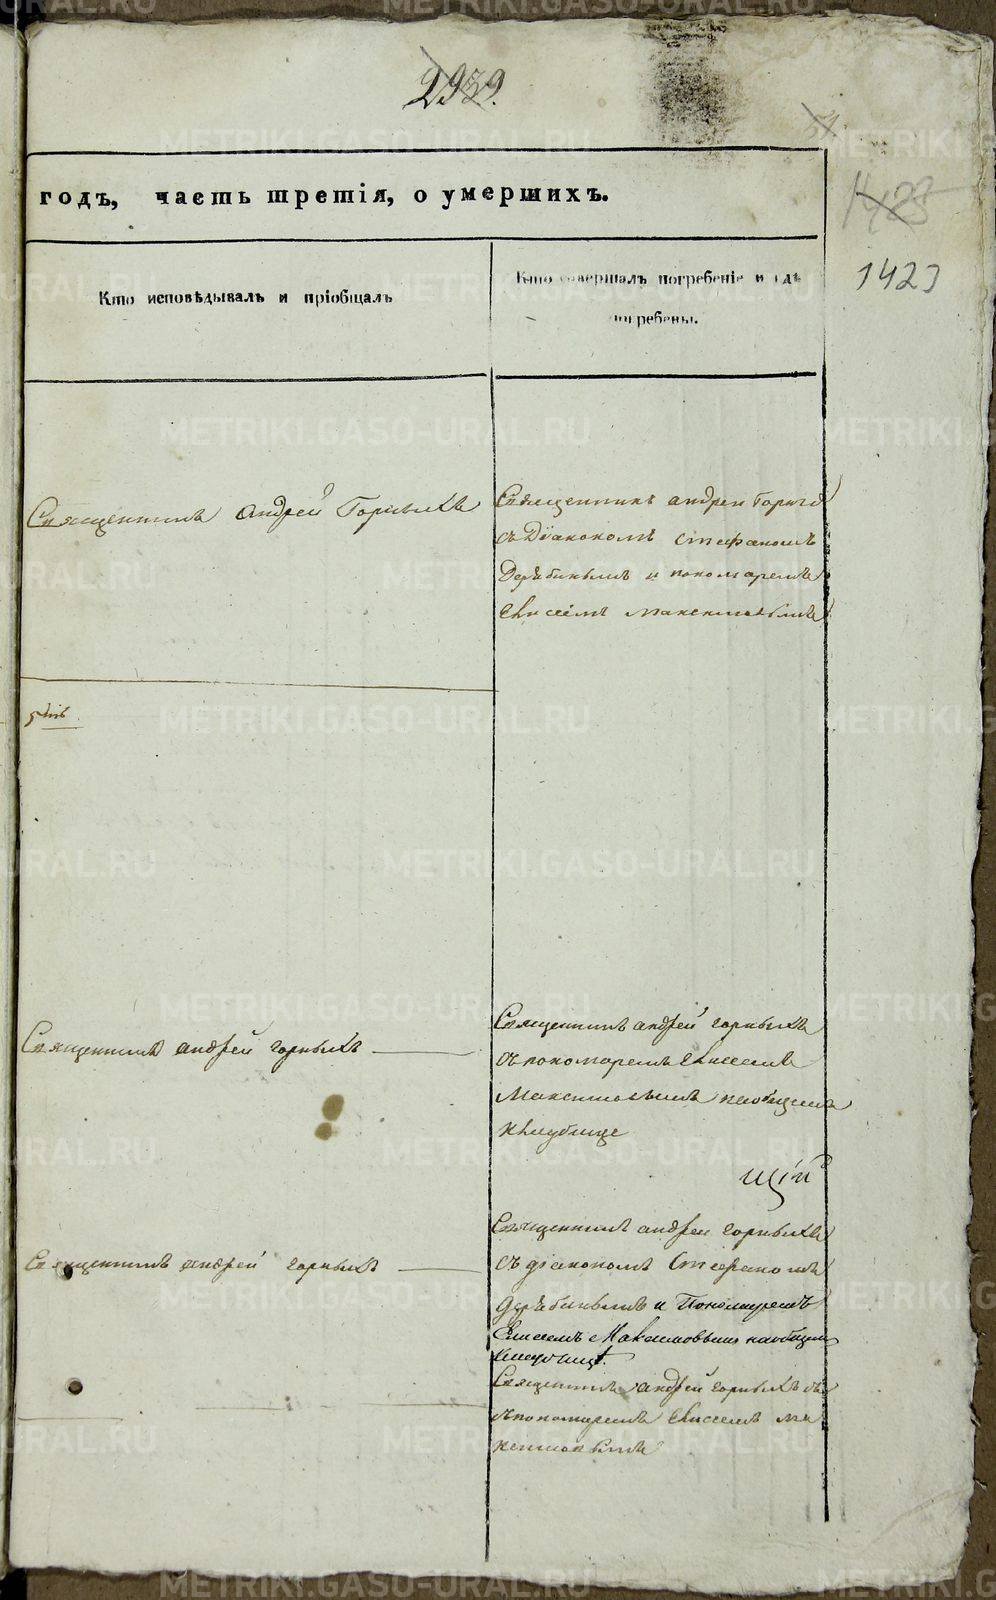 2939.
54.
1423
годъ, часть третія, о умершихъ.
1423
Кто исповѣдывалъ и пріобщалъ
Кто совершалъ погребеніе и гдѣ
погребены.
Священникъ Андрей Горныхъ
Священникъ андрей Горныхъ
съ Діакономъ Стефаномъ
Дерябинымъ и пономаремъ
Елисеемъ Максимовымъ
Священникъ андрей горныхъ
Священникъ андрей горныхъ
съ пономаремъ Елисеемъ
Максимовымъ наобщемъ
кладбище
щій
Священникъ андрей горныхъ
Священникъ андрей горныхъ
съ діакономъ Стефаномъ
дерябинымъ и Пономаремъ
Елисеемъ Максимовымъ наобщемъ
Священникъ андрей горныхъ съ
пономаремъ Елисеемъ Ма
ксимовымъ
METRIKI.GASO-URAL.RU